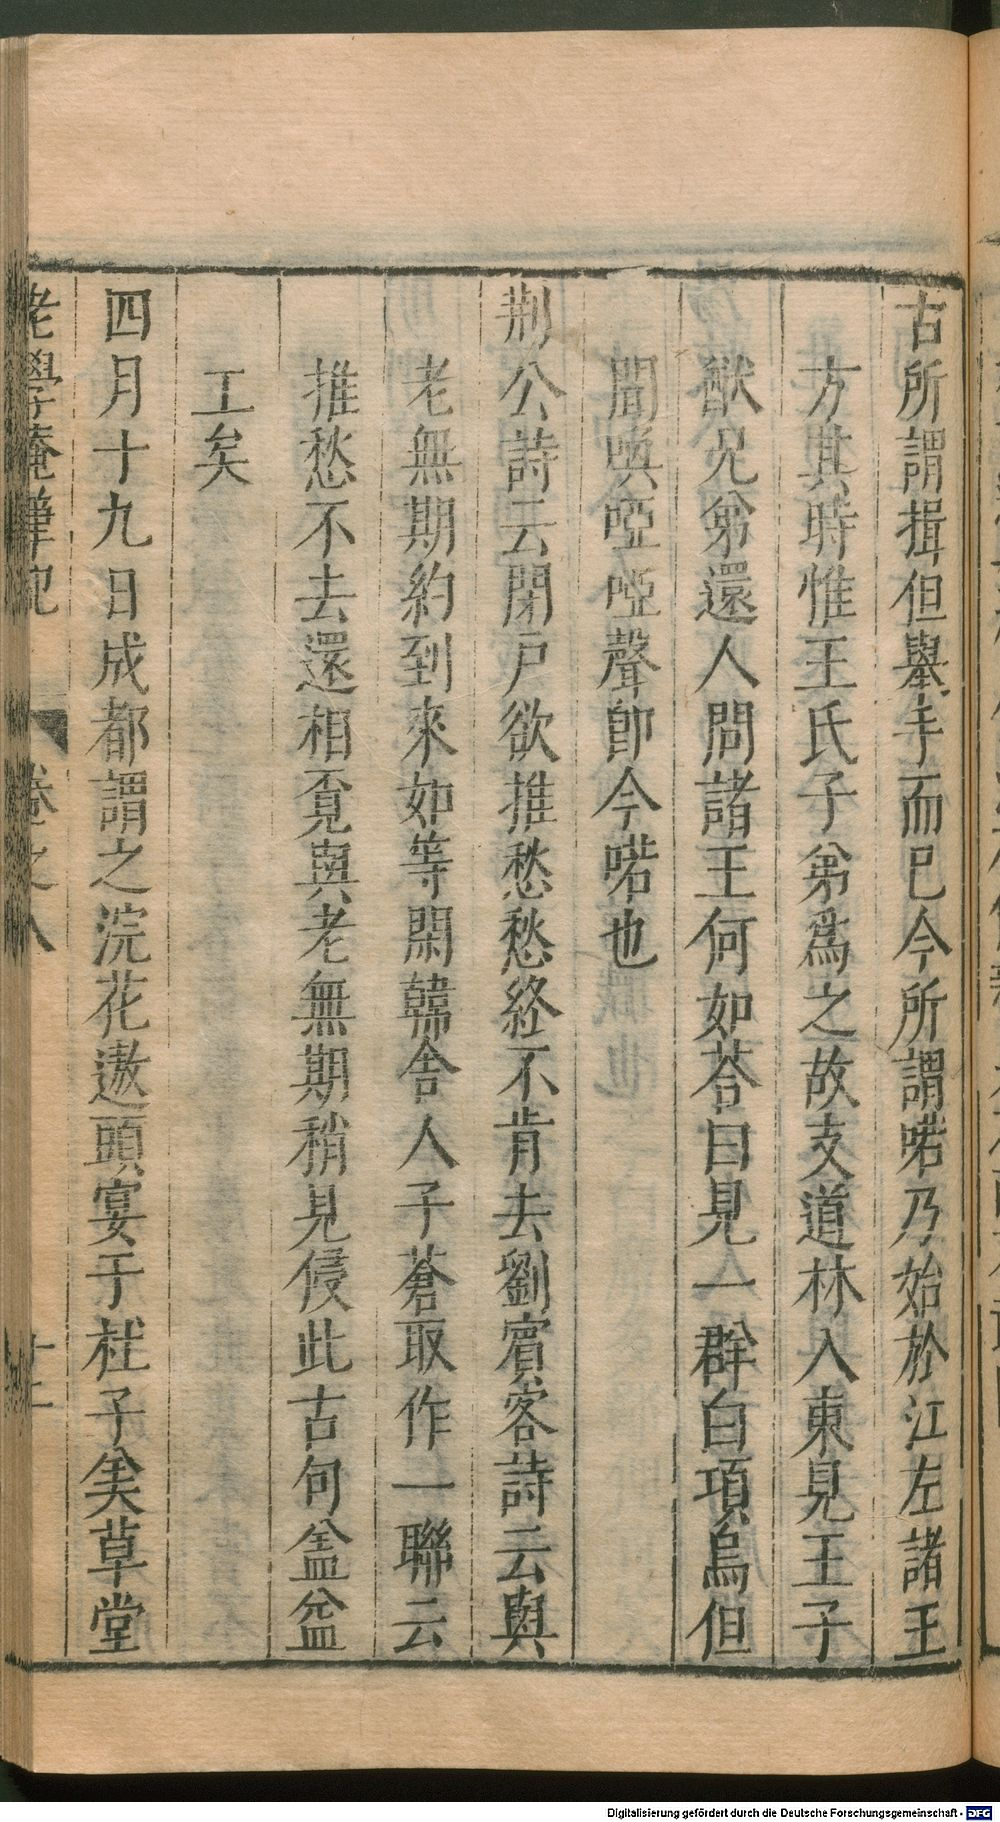 古所謂揖但舉手而已今所謂喏乃始於江左諸王
方其時惟王氏子弟爲之故支道林入東見王子
猷兄弟還人問諸王何如荅曰見一群白項烏但
聞喚啞啞聲即今喏也
荆公詩云閉戶欲推愁愁終不肯去劉賓客詩云與
老無期約到來如等閑韓舍人子蒼取作一聯云
推愁不去還相覔與老無期稍見侵此古句盖益
工矣
四月十九日成都謂之浣花遨頭宴于杜子美草堂
老學菴筆記 卷之八 十二
Digitalisierung gefördert durch die Deutsche Forschungsgemeinschaft - DFG